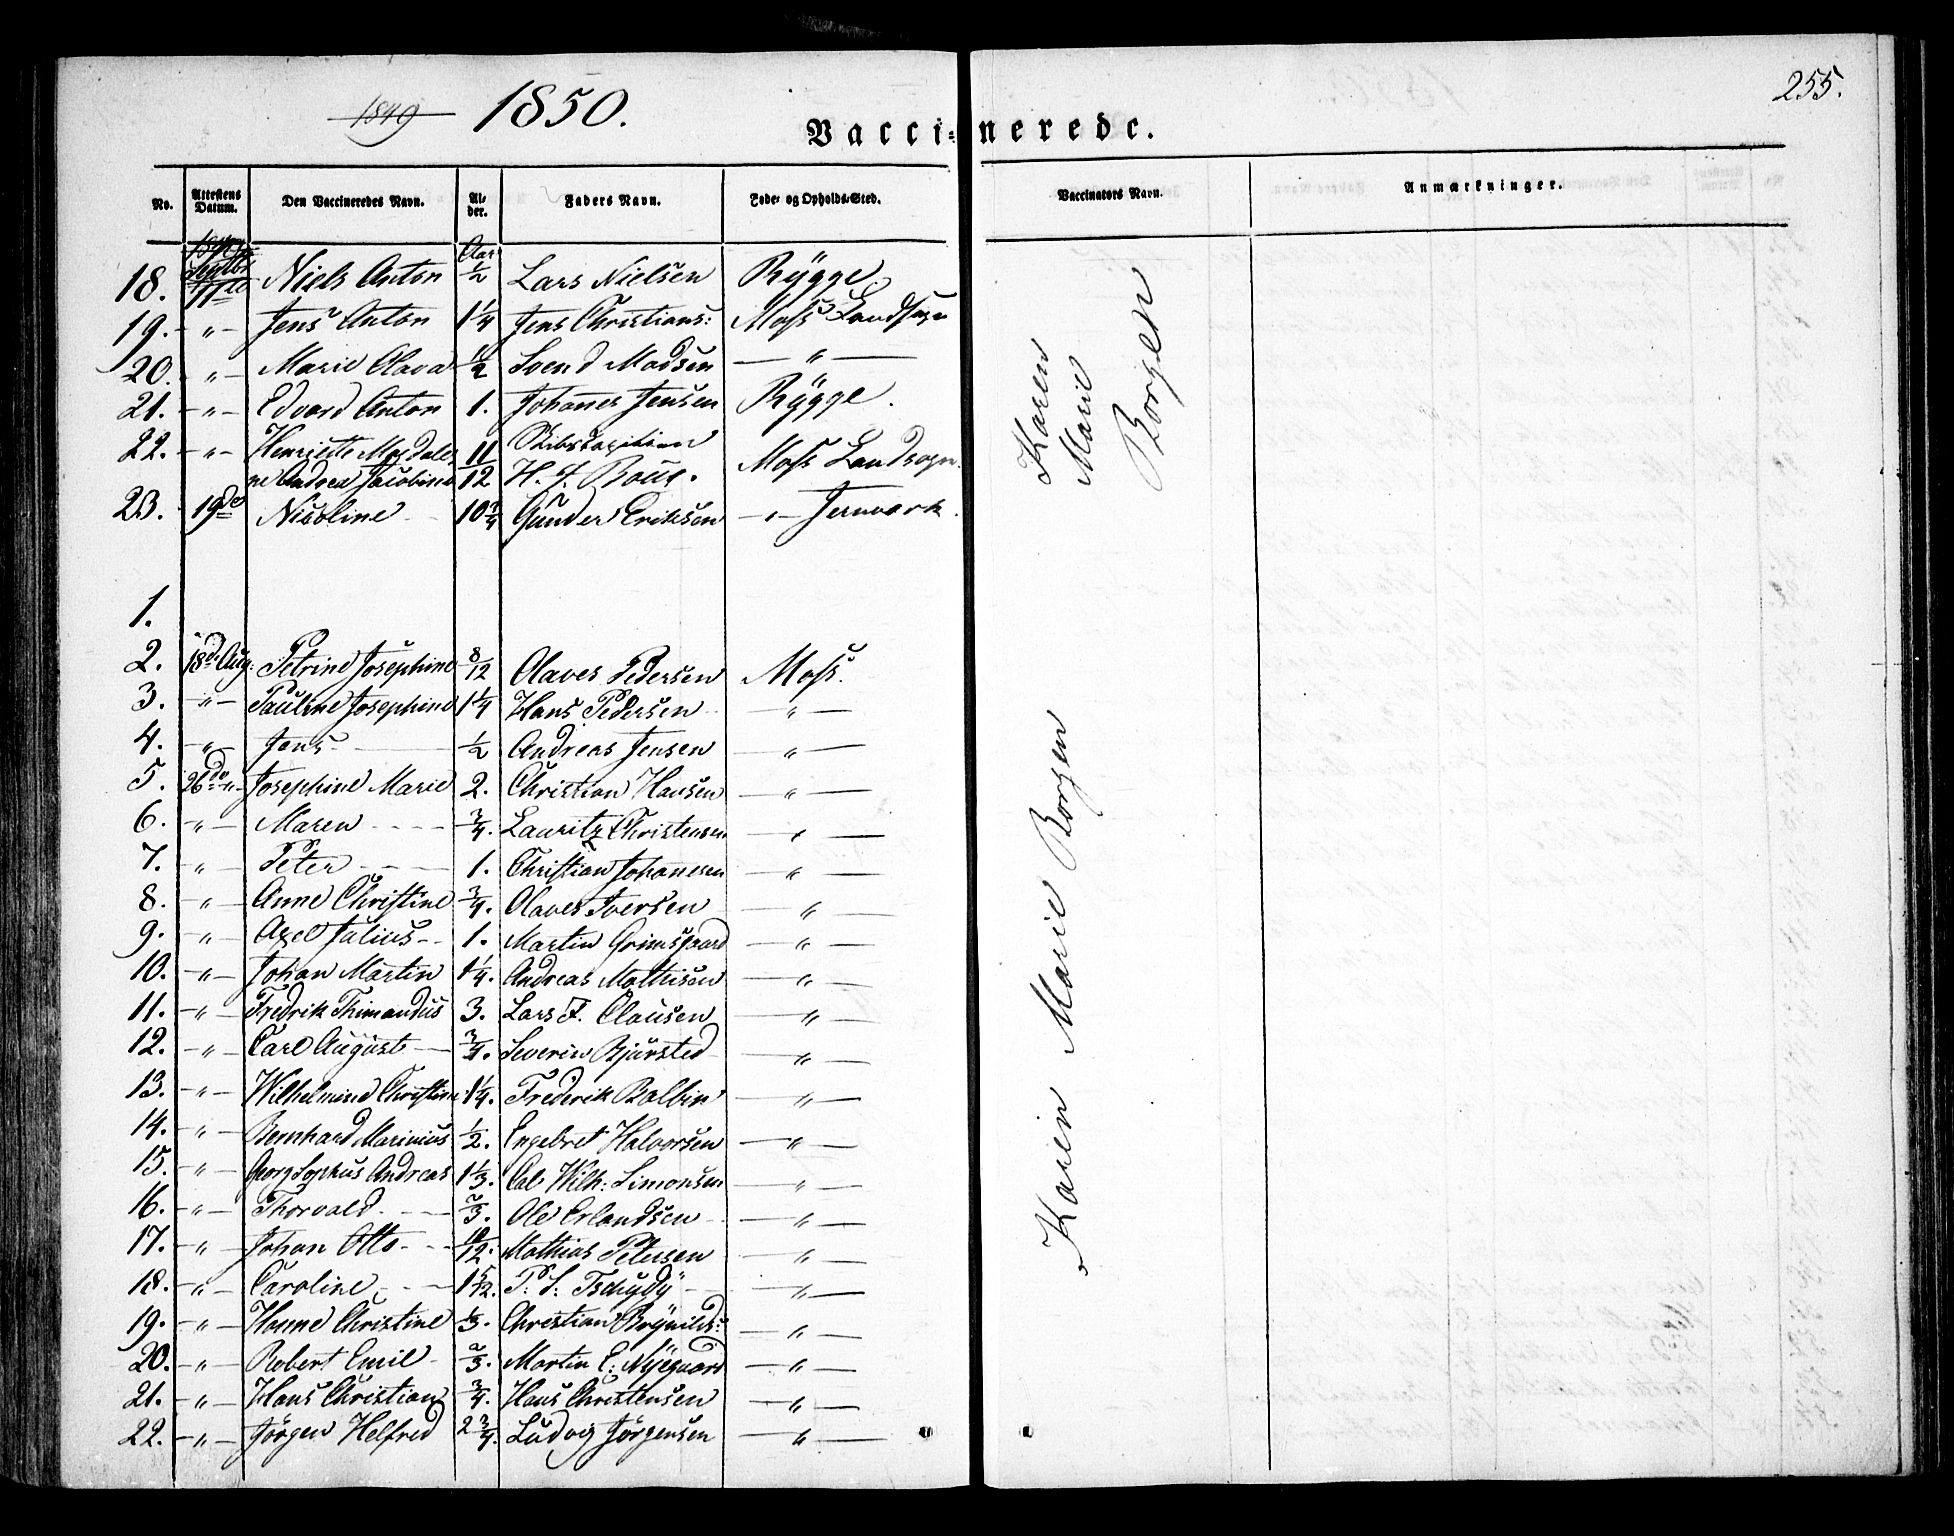 1849 1850.
255.
Vaccinerede.
No. Attestens Datum. Den Vaccineredes Navn. Alder. Faders Navn. Føde- og Opholds-Sted. Vaccinators Navn. Anmærkninger.
Aar
18. 11te Niels Anton 1/2 Lars Nielsen Rÿgge
19. " Jens Anton 1 1/4 Jens Christians: Moss Landsogn
20. " Marie Olava 1/2 Svend Madsen — " —
21. " Edvard Anton 1. Johannes Jensen Rÿgge.
22. " Henriette Magdale- 11/12 Skibscapitain Moss Landsogn.
ne Andrea Jacobine H. J. Boue.
23. 19de Nicoline 10 3/4 Gunder Eriksen — " — Jernværk.
Karen Marie Borgen
1.
2. 18de Aug: Petrine Josephine 8/12 Olaves Pedersen Moss.
3. " Pauline Josephine 1 1/4 Hans Pedersen — " —
4. " Jens 1/2 Andreas Jensen — " —
5. 26de " Josephine Marie 2. Christian Hansen — " —
6. " Maren 3/4. Lauritz Christensen — " —
7. " Peter 1. Christian Johannesen — " —
8. " Anne Christine 3/4. Olaves Iversen — " —
9. " Axel Julius 1. Martin Grimsgaard — " —
10. " Johan Martin 1 1/4. Andreas Mathisen — " —
11. " Fredrik Thimandus 3. Lars F. Clausen — " —
12. " Carl August 3/4. Severin Bjürsted — " —
13. " Wilhelmine Christine 1 1/4. Frederik Balbin — " —
14. " Bernhard Marinius 1/2. Engebret Halvorsen — " —
15. " Georg Sophus Andreas 1 1/3. Wilh: Simonsen — " —
16. " Thorvald 2/3. Ole Erlandsen — " —
17. " Johan Otto 10/12. Mathias Petersen — " —
18. " Caroline 1 5/12. P. S. Tschudÿ — " —
19. " Hanne Christine 1/3. Christian Brÿnilds: — " —
20. " Robert Emil 2/3. Martin E. Nÿegaard — " —
21. " Hans Christian 3/4. Hans Christensen — " —
22. " Jörgen Helfred 2 3/4. Ludvig Jörgensen — " —
Karen Marie Borgen